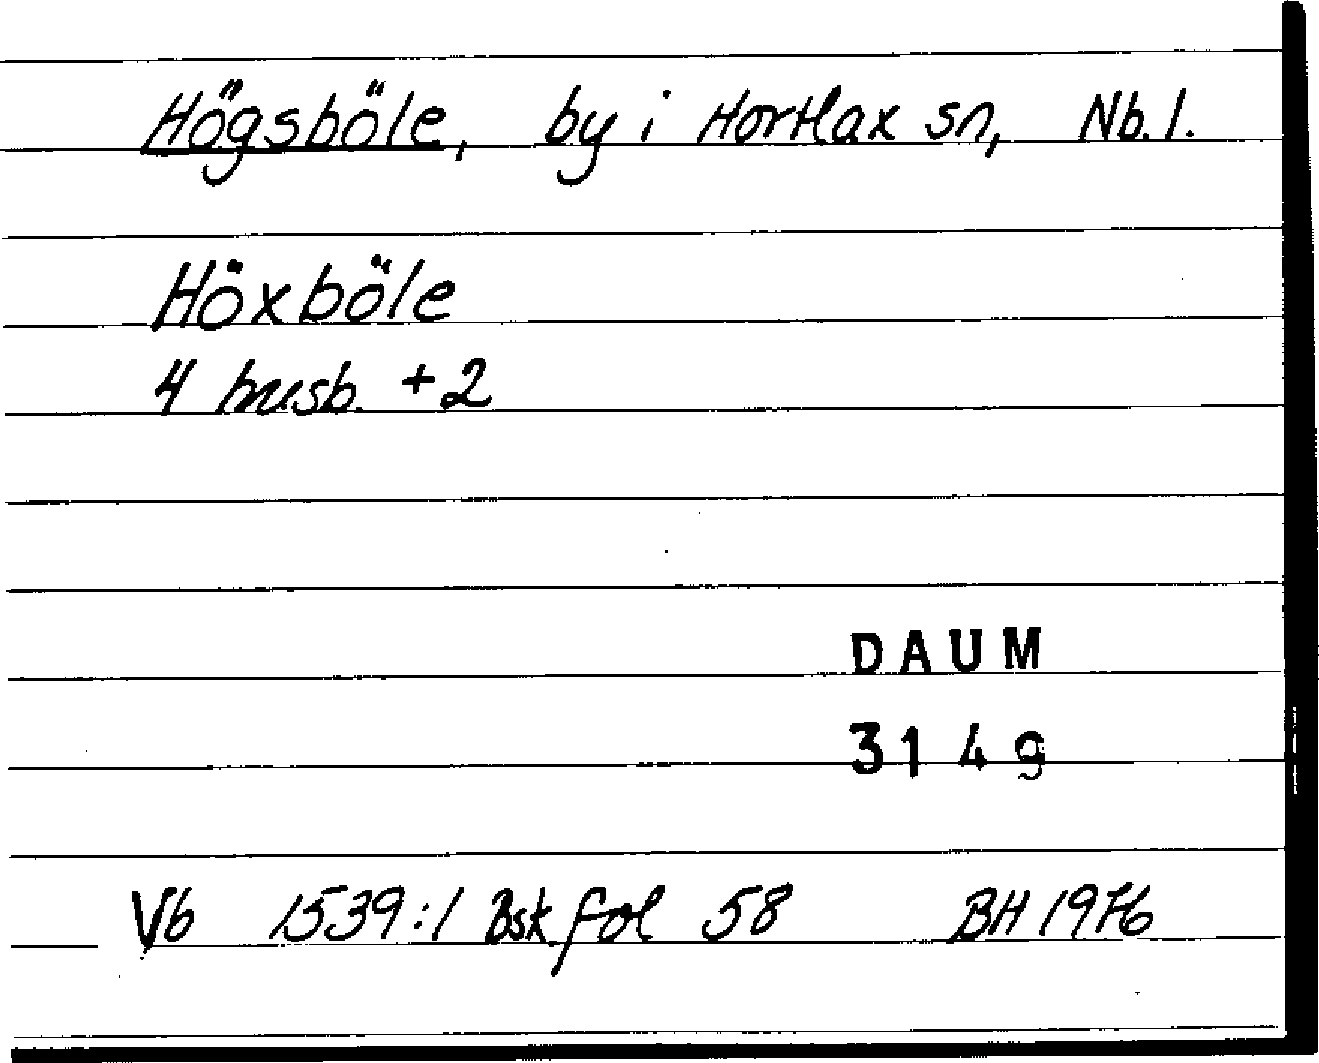 Högsböle, by i Hortlax sn, Nb. l.
Höxböle
4 husb. +2
DAUM
3149
Vb 1539:1 Bsk fol 58 BH 1976